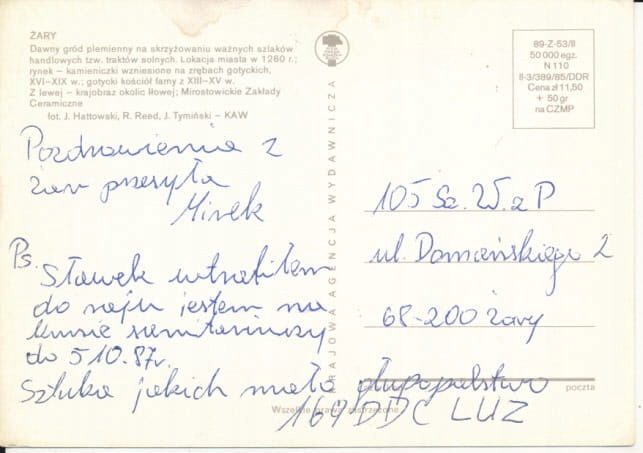 ŻARY
Dawny gród plemienny na skrzyżowaniu ważnych szlaków
handlowych tzw. traktów solnych. Lokacja miasta w 1260 r.;
rynek – kamieniczki wzniesione na zrębach gotyckich,
XVI–XIX w.; gotycki kościół farny z XIII–XV w.
Z lewej – krajobraz okolic Iłowej; Mirostowickie Zakłady
Ceramiczne
fot. J. Hattowski, R. Reed, J. Tymiński – KAW
Pozdrowienia z
żar przesyła
Mirek
Ps.
Sławek utrafiłem
do raju jestem na
kursie sanitariuszy
do 5 10. 87r.
Sztuka jakich mało głupopelstwo
169 DDC LUZ
KRAJOWA AGENCJA WYDAWNICZA
89-Z-53/II
50 000 egz.
N 110
II-3/389/85/DDR
Cena zł 11,50
+ 50 gr
na CZMP
105 Sz. W. z P
ul. Domańskiego 2
68-200 żary
poczta
Wszelkie prawa zastrzeżone